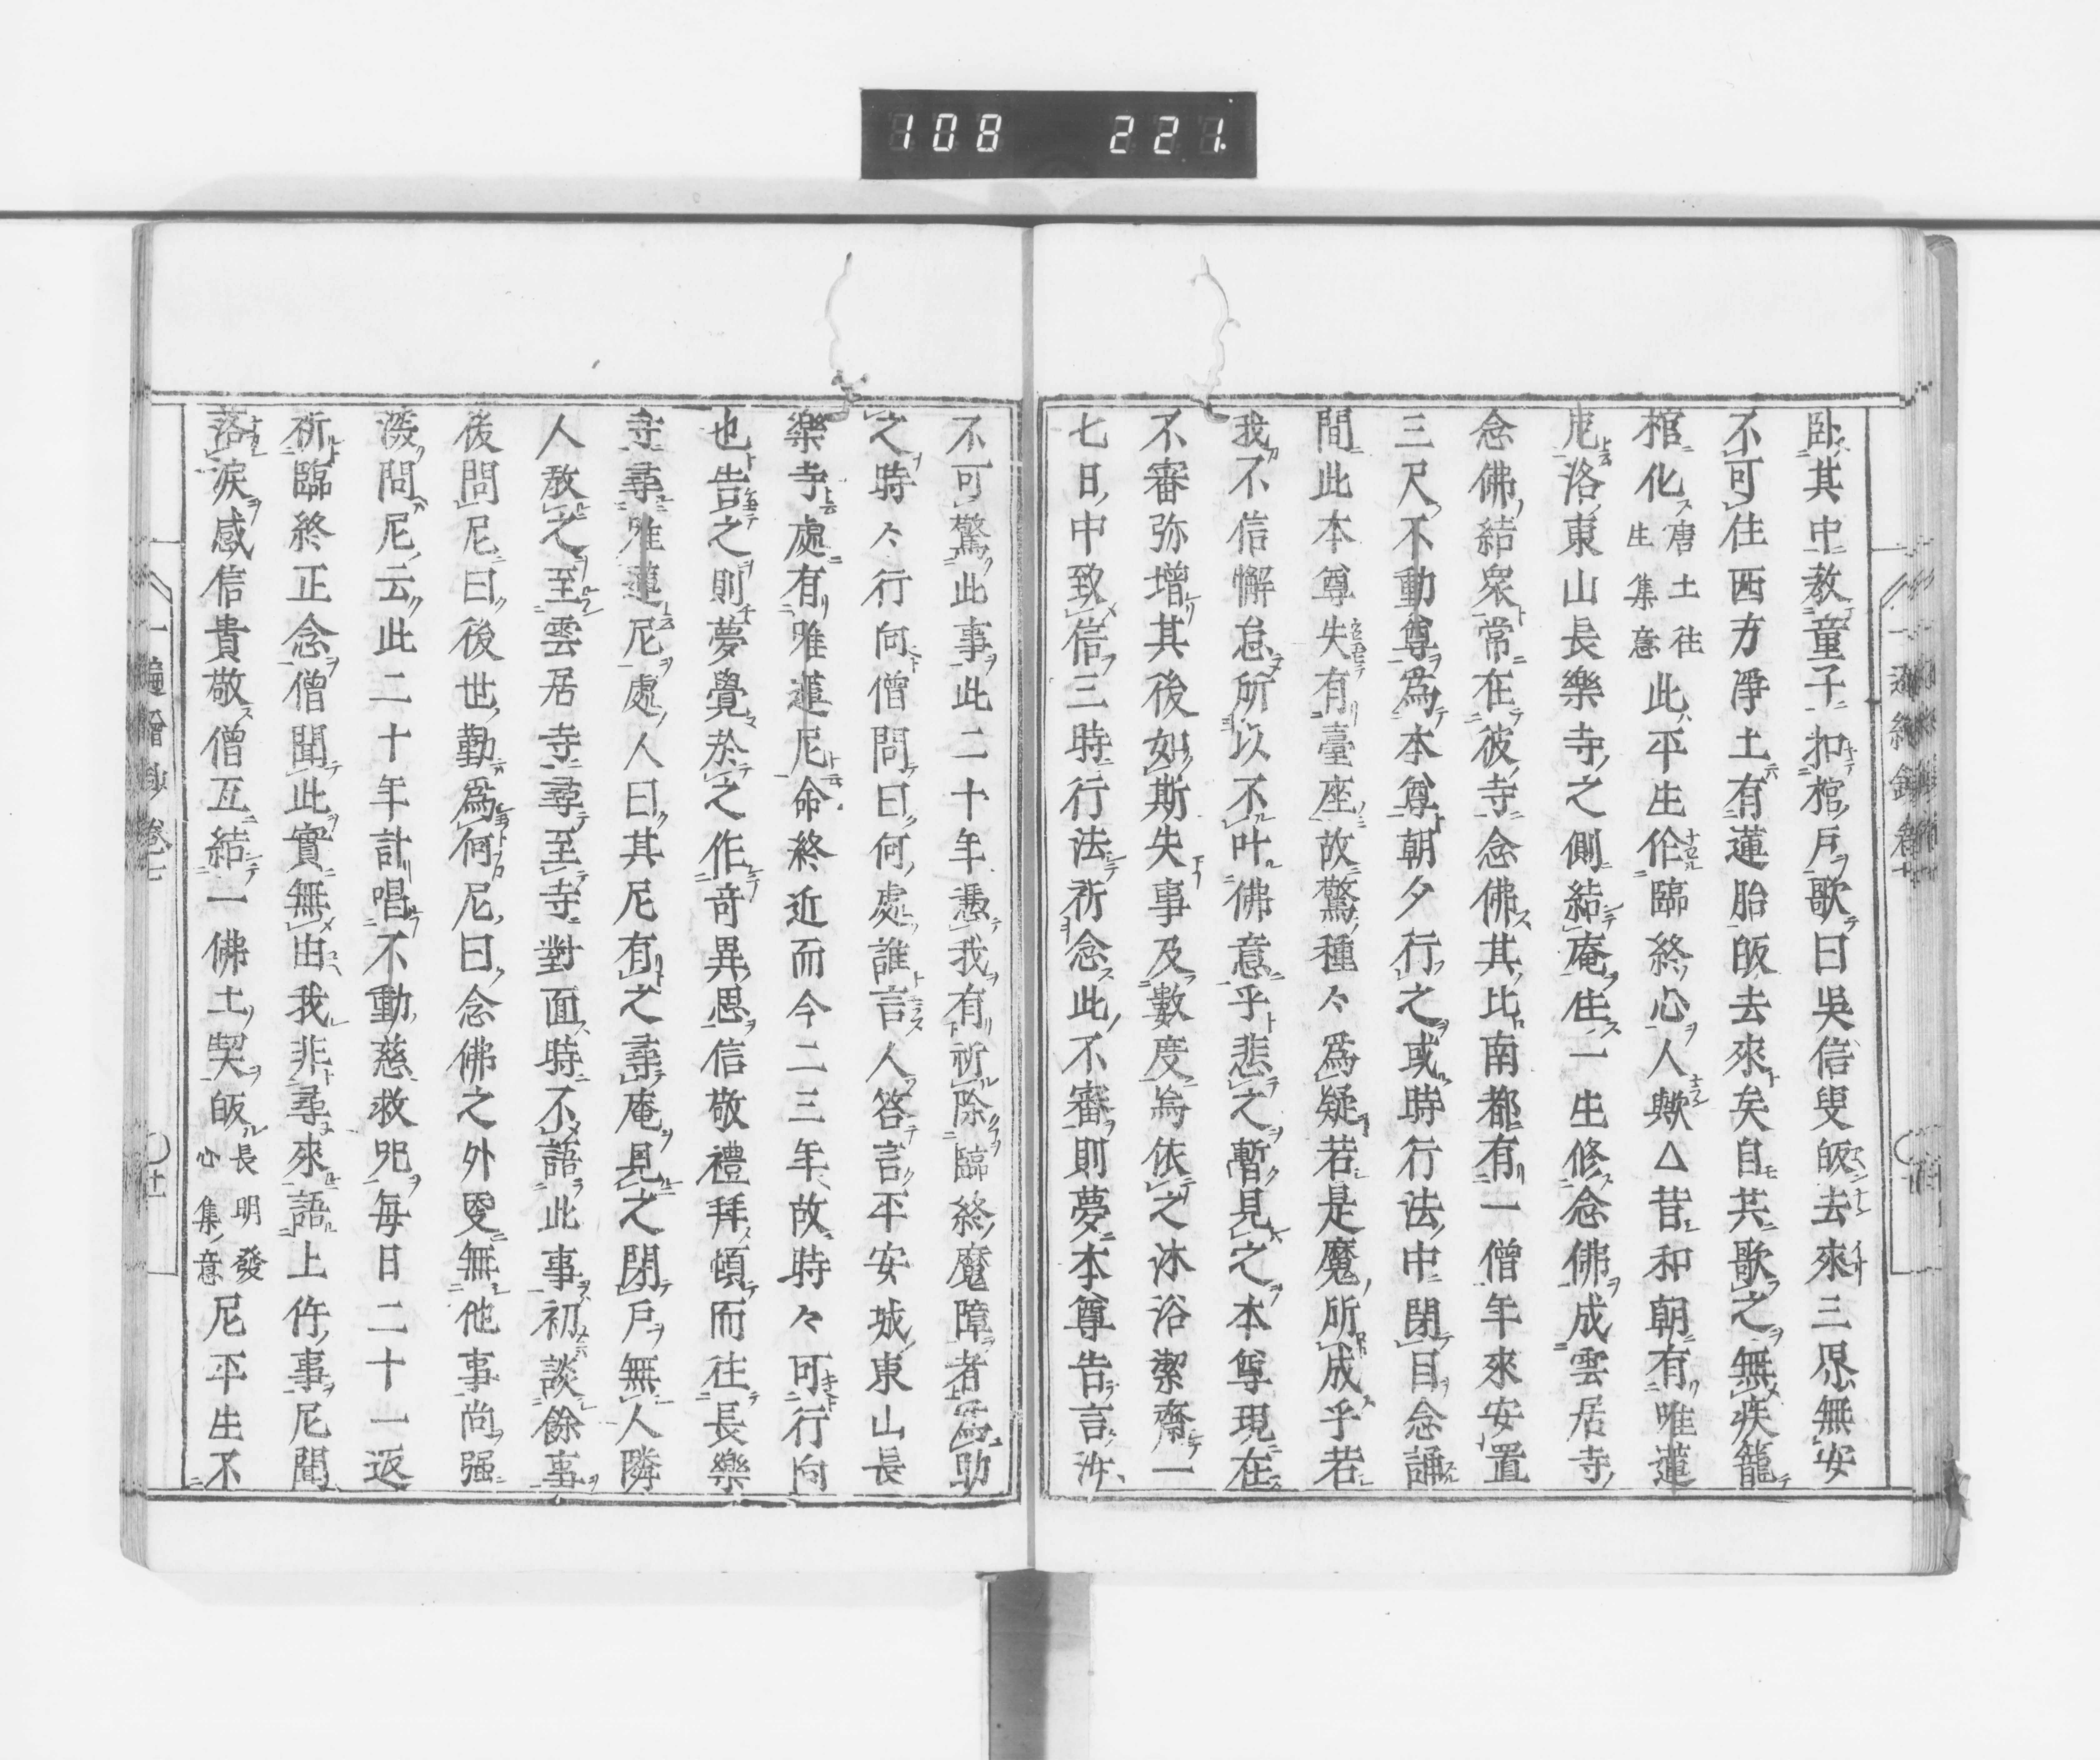 108 221
臥其中教童子扣棺戸歌曰吳信叟皈去來三界無安
不可住西方淨土有蓮胎皈去來矣自共歌之無疾籠
棺化唐土往生集意此平生伦臨終心人歟△昔和朝有唯蓮
尼洛東山長樂寺之側結庵住一生修念佛成雲居寺
念佛結衆常在彼寺念佛其比南都有一僧年來安置
三尺不動尊爲本尊朝夕行之或時行法中閉目念誦
間此本尊失有臺座故驚種々爲疑若是魔所成乎若
我不信懈怠所以不叶佛意乎悲之暫見之本尊現在
不審弥增其後如斯失事及數度爲依之沐浴潔齋一
七日中致信三時行法祈念此不審則夢本尊告言汝
不可驚此事此二十年憑我有祈除臨終魔障者爲助
之時々行向僧問曰何處誰言人答言平安城東山長
樂寺處有唯蓮尼命終近而今二三年故時々可行向
也告之則夢覺於之作奇異思信敬禮拜頓而往長樂
寺尋唯蓮尼處人曰其尼有之尋庵見之閉戸無人隣
人敎之至雲居寺尋至寺對面時不語此事初談餘事
後問尼曰後世勤爲何尼曰念佛之外更無他事尚强
淚問尼云此二十年計唱不動慈救咒毎日二十一返
祈臨終正念僧聞此實無由我非尋來語上件事尼聞
落淚感信貴敬僧互結一佛土契皈長明發心集意尼平生不
一遍繪鈔卷七